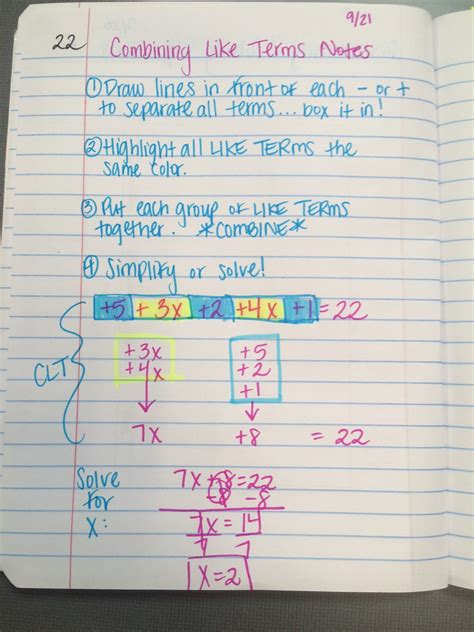 9/21
22 Combining Like Terms Notes
① Draw lines in front of each - or +
to separate all terms... box it in!
② Highlight all LIKE TERMS the
same color.
③ Put each group of LIKE TERMS
together. *COMBINE*
④ Simplify or solve!
+5 + 3x +2 +4x +1 = 22
CLT
+3x +5
+4x +2
+1
7x +8 = 22
Solve for X:
7x +8 = 22
-8 -8
7x = 14
7 7
X=2